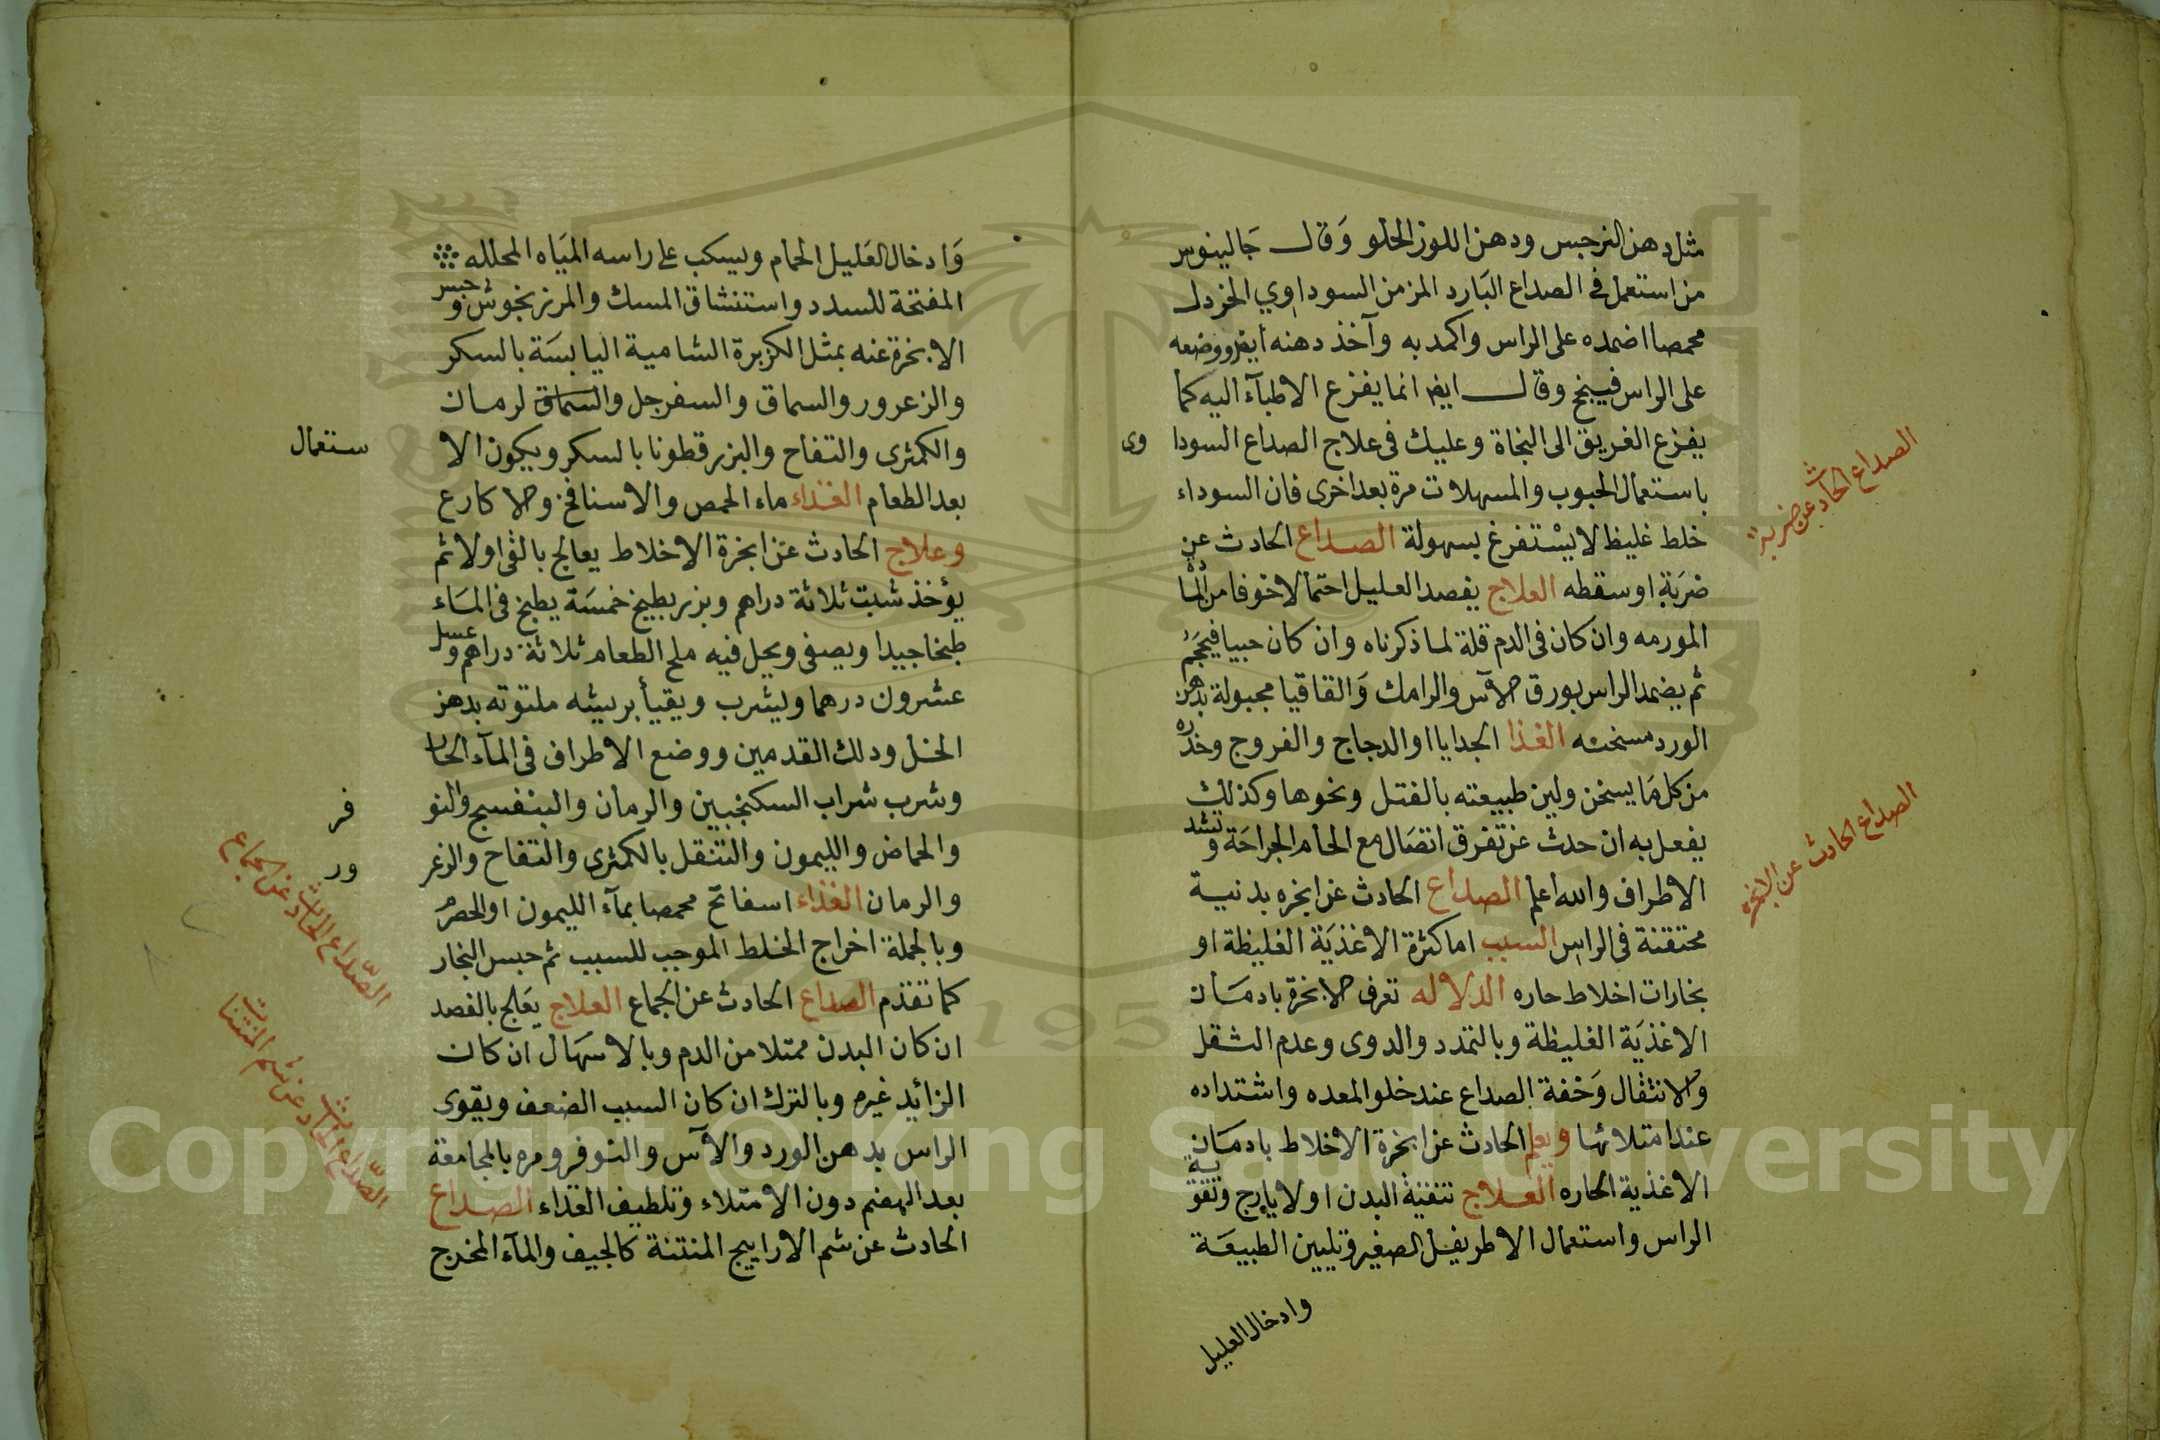 مثل دهن النرجس ودهن اللوز الحلو وَقال جَالينوس
من استعمل في الصداع البَارد المزمن السوداوي الخردل
محمصا اضمده على الراس واكمد به وآخذ دهنه ايضا ووضعه
على الراس فيبخ وقال ايضا انما يفزع الاطبآء اليه كما
يفزع الغريق الى النجاة وعليك في علاج الصداع السودا
وى
باستعمال الحبوب والمسهلات مرة بعد اخرى فان السوداء
خلط غليظ لا يسْتفرغ بسهولة الصداع الحادث عن
ضربَة او سقطه العلاج يفصد العليل احتمالا خوفا من المادة
المورمه وان كان في الدم قلة لما ذكرناه وان كان صبيا فيحجم
ثم يضمد الراس بورق الآس والرامك وَالقاقيا مجبولة بدهن
الورد مسخنه الغذا الجدايا او الدجاج والفروج وحذره
من كل مَا يسخن ولين طبيعته بالفتل ونحوها وكذلك
يفعل به ان حدث عن تفرق اتصَال مع الحام الجراحَة وتشد
الاطراف والله اعلم الصداع الحادث عن ابخره بدنية
محتقنة في الراس السبب اما كثرة الاغذيَة الغليظة او
بخارات اخلاط حاره الدلاله تعرف الابخرة بادمَان
الاغذيَة الغليظة وبالتمدد والدوى وعدم الثقل
والانتقال وَخفة الصداع عند خلو المعده واشتداده
عند امتلائها ويعلم الحادث عن ابخرة الاخلاط بادمَان
الاغذية الحاره العلاج تنقيَة البدن اولا يارج وتقوية
الراس واستعمال الاطريفل الصغير وتليين الطبيعَة
وادخال العليل
الصداع الحادث عن ضربة
الصداع الحادث عن الابخره
وَادخال العَليل الحمام ويسكب على راسه الميَاه المحلله
المفتحة للسدد واستنشاق المسك والمرزنجوش وحبس
الابخرة عنه بمثل الكزبرة الشامية اليابسَة بالسكر
والزعرور والسماق والسفرجل والسماق لرمان
والكمثرى والتفاح والبزر قطونا بالسكر ويكون الا
ستعمال
بعد الطعام الغذاء ماء الحمص والاسنافخ والاكارع
وعلاج الحادث عَن ابخرة الاخلاط يعالج بالقى اولا ثم
يؤخذ شبت ثلاثة دراهم وبزر بطيخ خمسَة يطبخ في المَاء
طبخا جيدا ويصفى ويحل فيه ملح الطعام ثلاثة دراهم وعسل
عشرون درهما ويشرب ويقيأ بريشه ملتوته بدهن
الخل ودلك القدمين ووضع الاطراف في المآء الحار
وشرب شراب السكنجبين والرمان والبنفسج والنو
فر
والحماض والليمون والتنقل بالكمثرى والتفاح والزعر
ور
والرمان الغذاء اسفاتح محمصا بمآء الليمون او الحصرم
وبالجملة اخراج الخلط الموجب للسبب ثم حبس البخار
كما تقدم الصداع الحادث عن الجماع العلاج يعَالج بالفصد
ان كان البدن ممتلا من الدم وبالاسهَال ان كان
الزائد غيره وبالترك ان كان السبب الضعف ويقّوى
الراس بدهن الورد والآس والنوفر ومره بالمجامعة
بعد الهضم دون الامتلاء وتلطيف الغذاء الصداع
الحادث عن شم الاراييج المنتنة كالجيف والمآء المخرج
الصّداع الحادث عن الجماع
الصّداع الحادث عن شم المنتنات
Copyright © King Saud University
1957